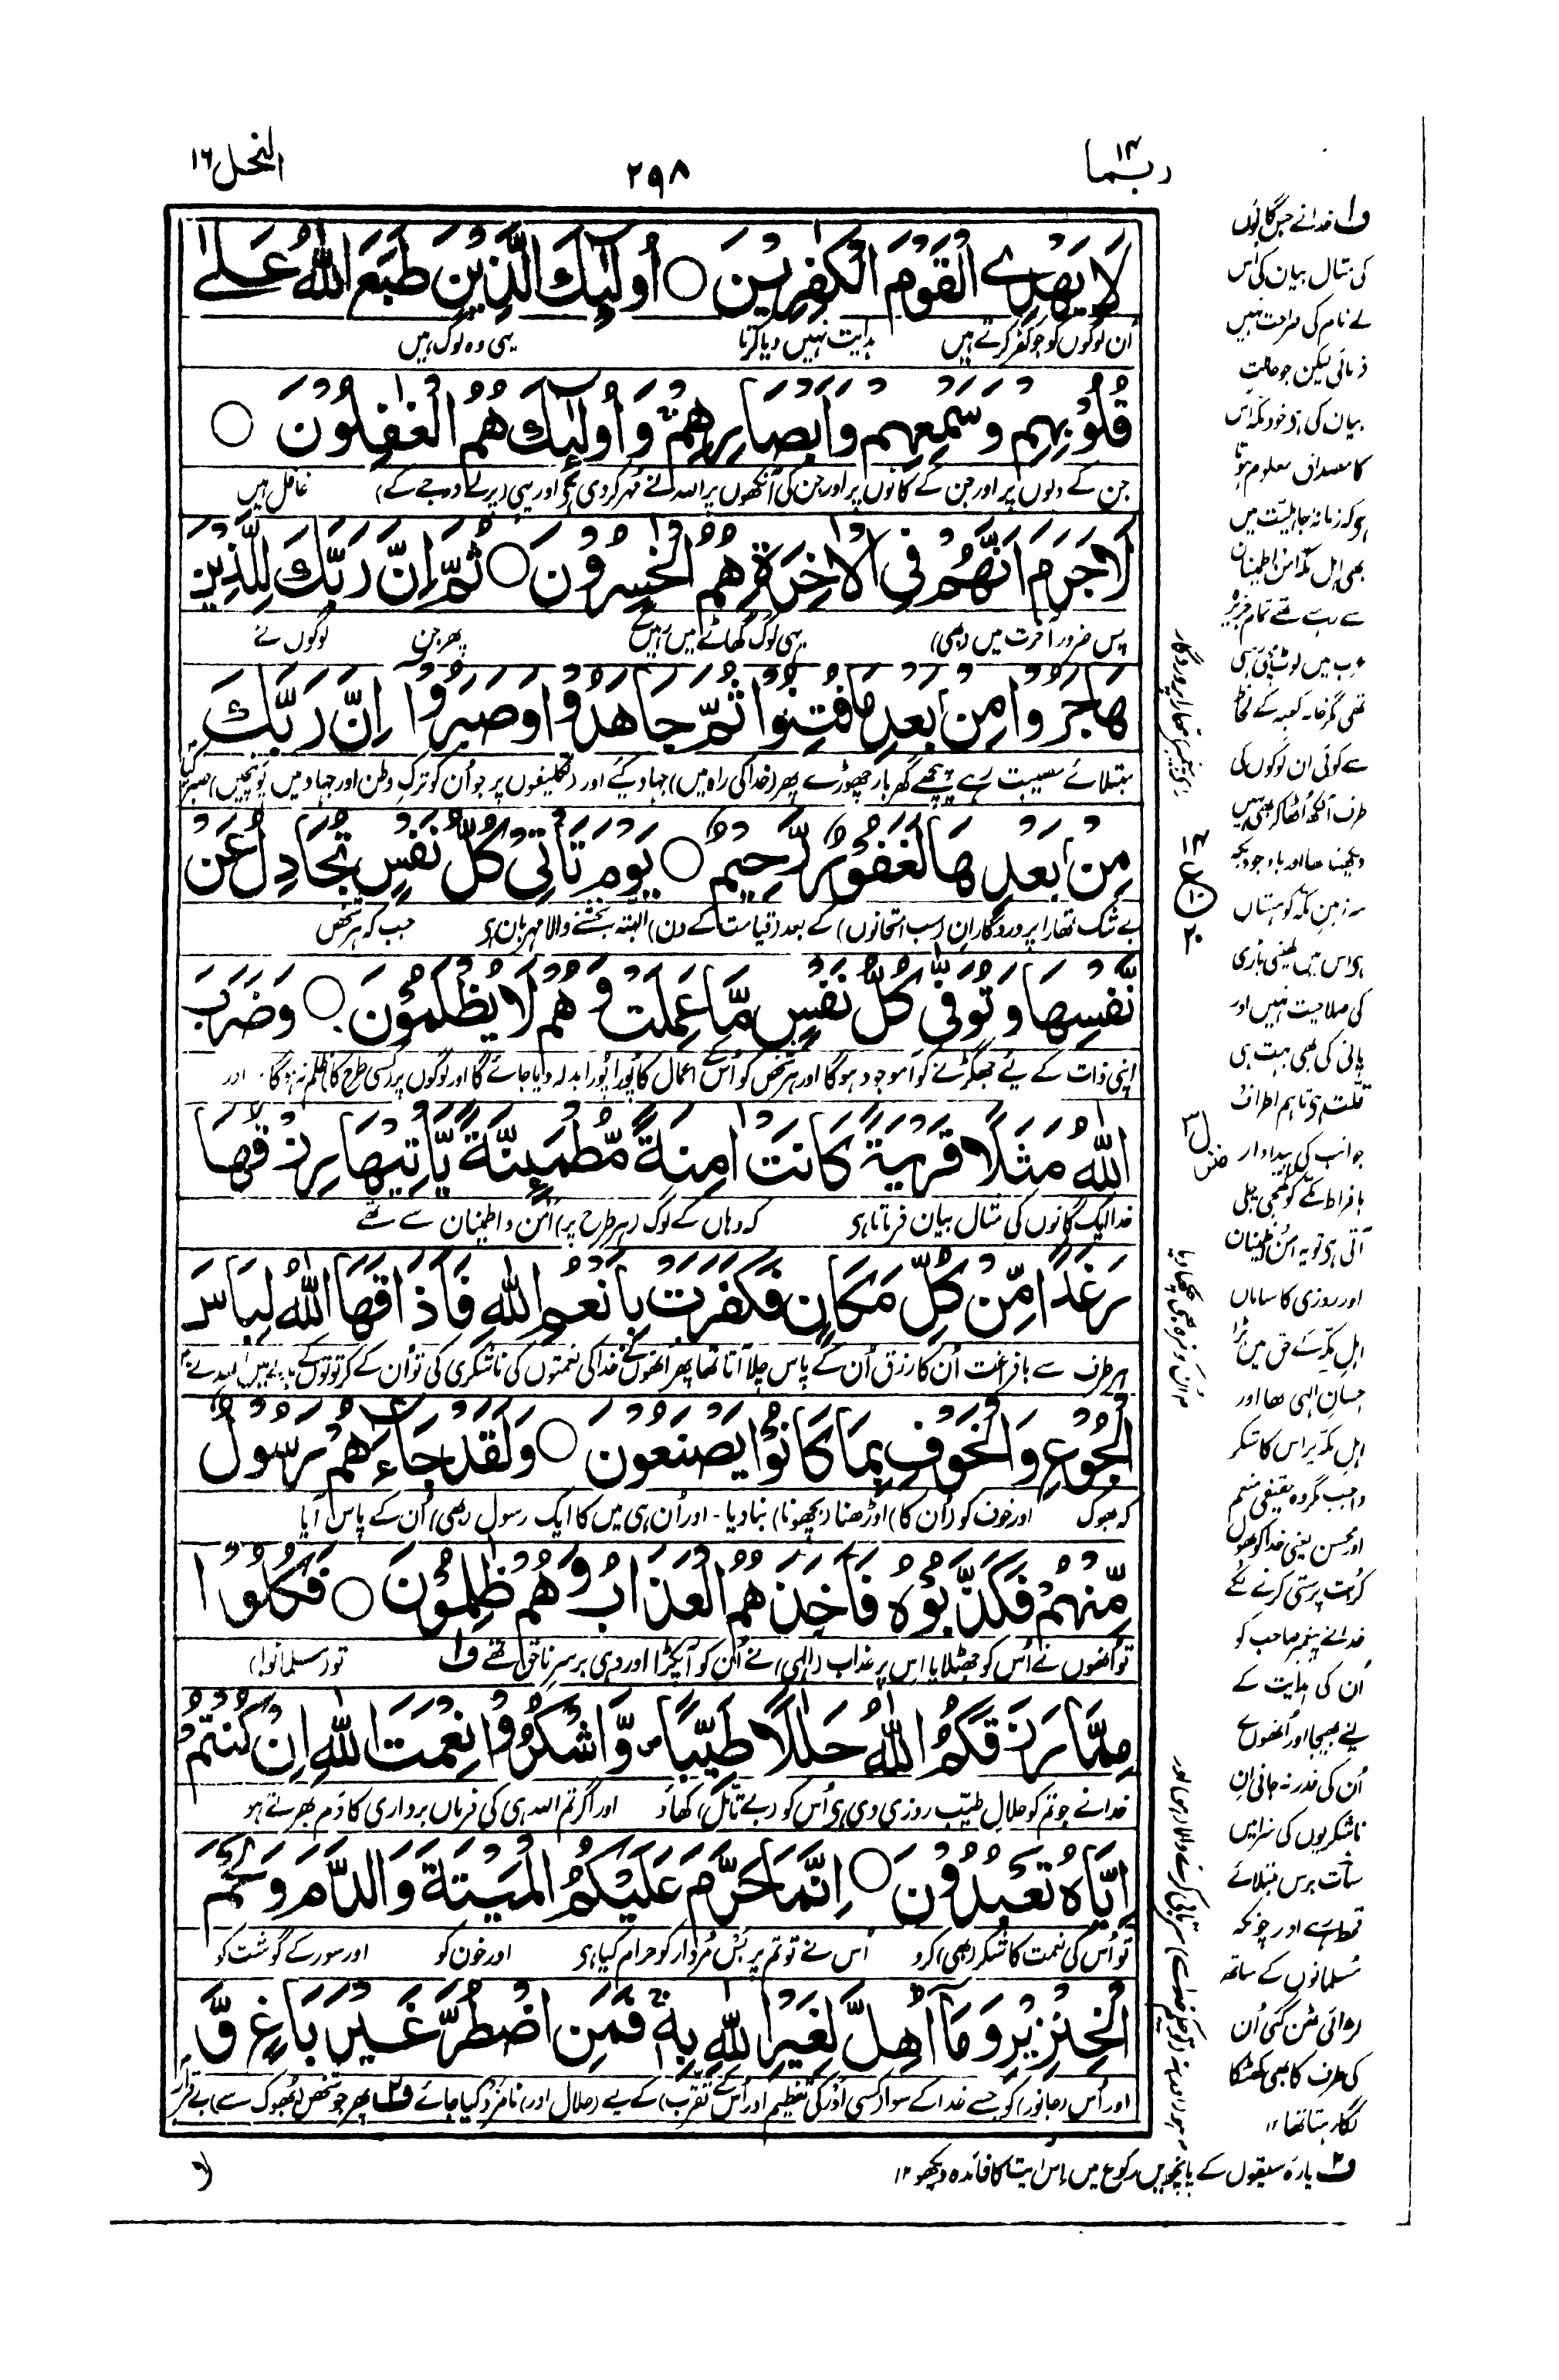 ربما ١٤
٢٩٨
النحل ١٦
لَا يَهْدِي الْقَوْمَ الْكٰفِرِيْنَ ○ اُولٰٓئِكَ الَّذِيْنَ طَبَعَ اللّٰهُ عَلٰى
اُن لوگوں کو جو کفر کرتے ہیں ہدایت نہیں دیا کرتا یہی وہ لوگ ہیں
قُلُوْبِهِمْ وَسَمْعِهِمْ وَاَبْصَارِهِمْ ۚ وَاُولٰٓئِكَ هُمُ الْغٰفِلُوْنَ ○
جن کے دلوں پر اور جن کے کانوں پر اور جن کی آنکھوں پر اللہ نے مُہر کر دی ہی اور یہی (پرلے درجے کے) غافل ہیں
لَا جَرَمَ اَنَّهُمْ فِي الْاٰخِرَةِ هُمُ الْخٰسِرُوْنَ ○ ثُمَّ اِنَّ رَبَّكَ لِلَّذِيْنَ
پس ضرور آخرت میں (بھی) یہی لوگ گھاٹے میں رہیں گے پھر جن لوگوں نے
هَاجَرُوْا مِنْۢ بَعْدِ مَا فُتِنُوْا ثُمَّ جَاهَدُوْا وَصَبَرُوْٓا اِنَّ رَبَّكَ
مبتلائے مصیبت رہے پیچھے گھر بار چھوڑے پھر (خدا کی راہ میں) جہاد کیے اور (تکلیفوں پر جو اُن کو ترکِ وطن اور جہاد میں پونہچیں) صبر کیا
مِنْۢ بَعْدِهَا لَغَفُوْرٌ رَّحِيْمٌ ○ يَوْمَ تَاْتِيْ كُلُّ نَفْسٍ تُجَادِلُ عَنْ
بے شک تمھارا پروردگار ان (سب امتحانوں) کے بعد (قیامت کے دن) البتہ بخشنے والا مہربان ہی جب کہ ہر شخص
نَّفْسِهَا وَتُوَفّٰى كُلُّ نَفْسٍ مَّا عَمِلَتْ وَهُمْ لَا يُظْلَمُوْنَ ○ وَضَرَبَ
اپنی ذات کے لیے جھگڑنے کو آ موجود ہوگا اور ہر شخص کو اُس کے اعمال کا پُورا پُورا بدلہ دیا جائے گا اور لوگوں پر کسی طرح کا ظلم نہ ہوگا۔ اور
اللّٰهُ مَثَلًا قَرْيَةً كَانَتْ اٰمِنَةً مُّطْمَىِٕنَّةً يَّاْتِيْهَا رِزْقُهَا
خدا ایک گانوں کی مثال بیان فرماتا ہی کہ وہاں کے لوگ (ہر طرح پر) امن و اطمینان سے تھے
رَغَدًا مِّنْ كُلِّ مَكَانٍ فَكَفَرَتْ بِاَنْعُمِ اللّٰهِ فَاَذَاقَهَا اللّٰهُ لِبَاسَ
ہر طرف سے بافراغت اُن کا رزق اُن کے پاس چلا آتا تھا پھر اُنھوں نے خدا کی نعمتوں کی ناشکری کی تو اُن کے کرتوتوں کے بدلے میں اللہ نے
الْجُوْعِ وَالْخَوْفِ بِمَا كَانُوْا يَصْنَعُوْنَ ○ وَلَقَدْ جَآءَهُمْ رَسُوْلٌ
کہ بھوک اور خوف کو (اُن کا) اوڑھنا (بچھونا) بنا دیا۔ اور اُن ہی میں کا ایک رسول (بھی) اُن کے پاس آیا
مِّنْهُمْ فَكَذَّبُوْهُ فَاَخَذَهُمُ الْعَذَابُ وَهُمْ ظٰلِمُوْنَ ○ فَكُلُوْا
تو اُنھوں نے اُس کو جھٹلایا اِس پر عذاب (الہی) نے اُن کو آ پکڑا اور وہی برسرِ ناحق تھے ف۱ تو (مسلمانو!)
مِمَّا رَزَقَكُمُ اللّٰهُ حَلٰلًا طَيِّبًا ۪ وَّاشْكُرُوْا نِعْمَتَ اللّٰهِ اِنْ كُنْتُمْ
خدا نے جو تم کو حلال طیّب روزی دی ہی اُس کو (بے تأمل) کھاؤ اور اگر تم اللہ ہی کی فرماں برداری کا دَم بھرتے ہو
اِيَّاهُ تَعْبُدُوْنَ ○ اِنَّمَا حَرَّمَ عَلَيْكُمُ الْمَيْتَةَ وَالدَّمَ وَلَحْمَ
تو اُس کی نعمت کا شکر (بھی) کرو اُس نے تو تم پر بس مُردار کو حرام کیا ہی اور خون کو اور سور کے گوشت کو
الْخِنْزِيْرِ وَمَآ اُهِلَّ لِغَيْرِ اللّٰهِ بِهٖ ۚ فَمَنِ اضْطُرَّ غَيْرَ بَاغٍ وَّ
اور اُس (جانور) کو جسے خدا کے سوا کسی اَور کی تعظیم اور اُس کے تقرّب) کے لیے (حلال اور) نامزد کیا جائے ف۲ پھر جو شخص (بھوک سے) بے قرار
ف۱ خدا نے جس گانوں
کی مثال بیان کی اُس
کے نام کی صراحت نہیں
فرمائی لیکن جو حالت
بیان کی ہی خود مکہ اُس
کا مصداق معلوم ہوتا
ہی کہ زمانۂ جاہلیت میں
بھی اہلِ مکہ امن اطمینان
سے رہتے تھے تمام جزیرہ
عرب میں لوٹ مچی رہتی
تھی مگر خانہ کعبہ کے لحاظ
سے کوئی ان لوگوں کی
طرف آنکھ اُٹھا کر بھی نہیں
دیکھتا تھا اور باوجودیکہ
سرزمینِ مکہ کوہستان
ہی اس میں کھیتی باڑی
کی صلاحیت نہیں اور
پانی کی بھی بہت ہی
قلّت ہی تاہم اطراف
جوانب کی پیداوار
بافراط مکّے کو کھچی چلی
آتی ہی تو یہ امن اطمینان
اور روزی کا سامان
اہلِ مکہ کے حق میں بڑا
احسانِ الہی تھا اور
اہلِ مکہ پر اس کا شکر
واجب مگر وہ حقیقی منعم
اور محسن یعنی خدا کو بھول
کر بُت پرستی کرنے لگے
خدا نے پیغمبر صاحب کو
اُن کی ہدایت کے
لیے بھیجا اور اُنھوں نے
اُن کی قدر نہ جانی اِن
ناشکریوں کی سزا میں
سات برس مبتلائے
قحط رہے اور چونکہ
مسلمانوں کے ساتھ
لڑائی ٹھن گئی اُن
کی طرف کا بھی کھٹکا
لگا رہتا تھا ۱۲
ف۲ پارہ سیقول کے پانچویں رکوع میں اِس آیت کا فائدہ دیکھو ۱۲
لا